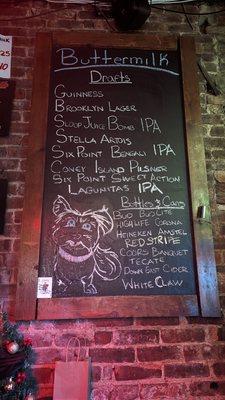 Buttermilk
Drafts
Guinness
Brooklyn Lager
Sloop Juice Bomb IPA
Stella Artois
Six Point Bengali IPA
Coney Island Pilsner
Six Point Sweet Action
Lagunitas IPA
Bottles & Cans
Bud Bud Lite
High Life Corona
Heineken Amstel
Red Stripe
Coors Banquet
Tecate
Down East Cider
White Claw